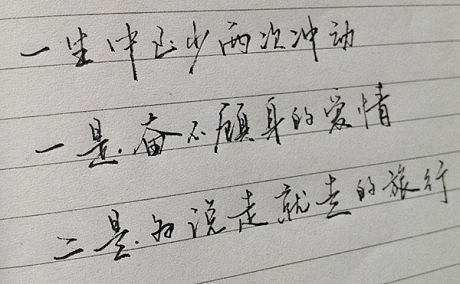 一生中至少两次冲动
一是.奋不顾身的爱情
二是.为说走就走的旅行